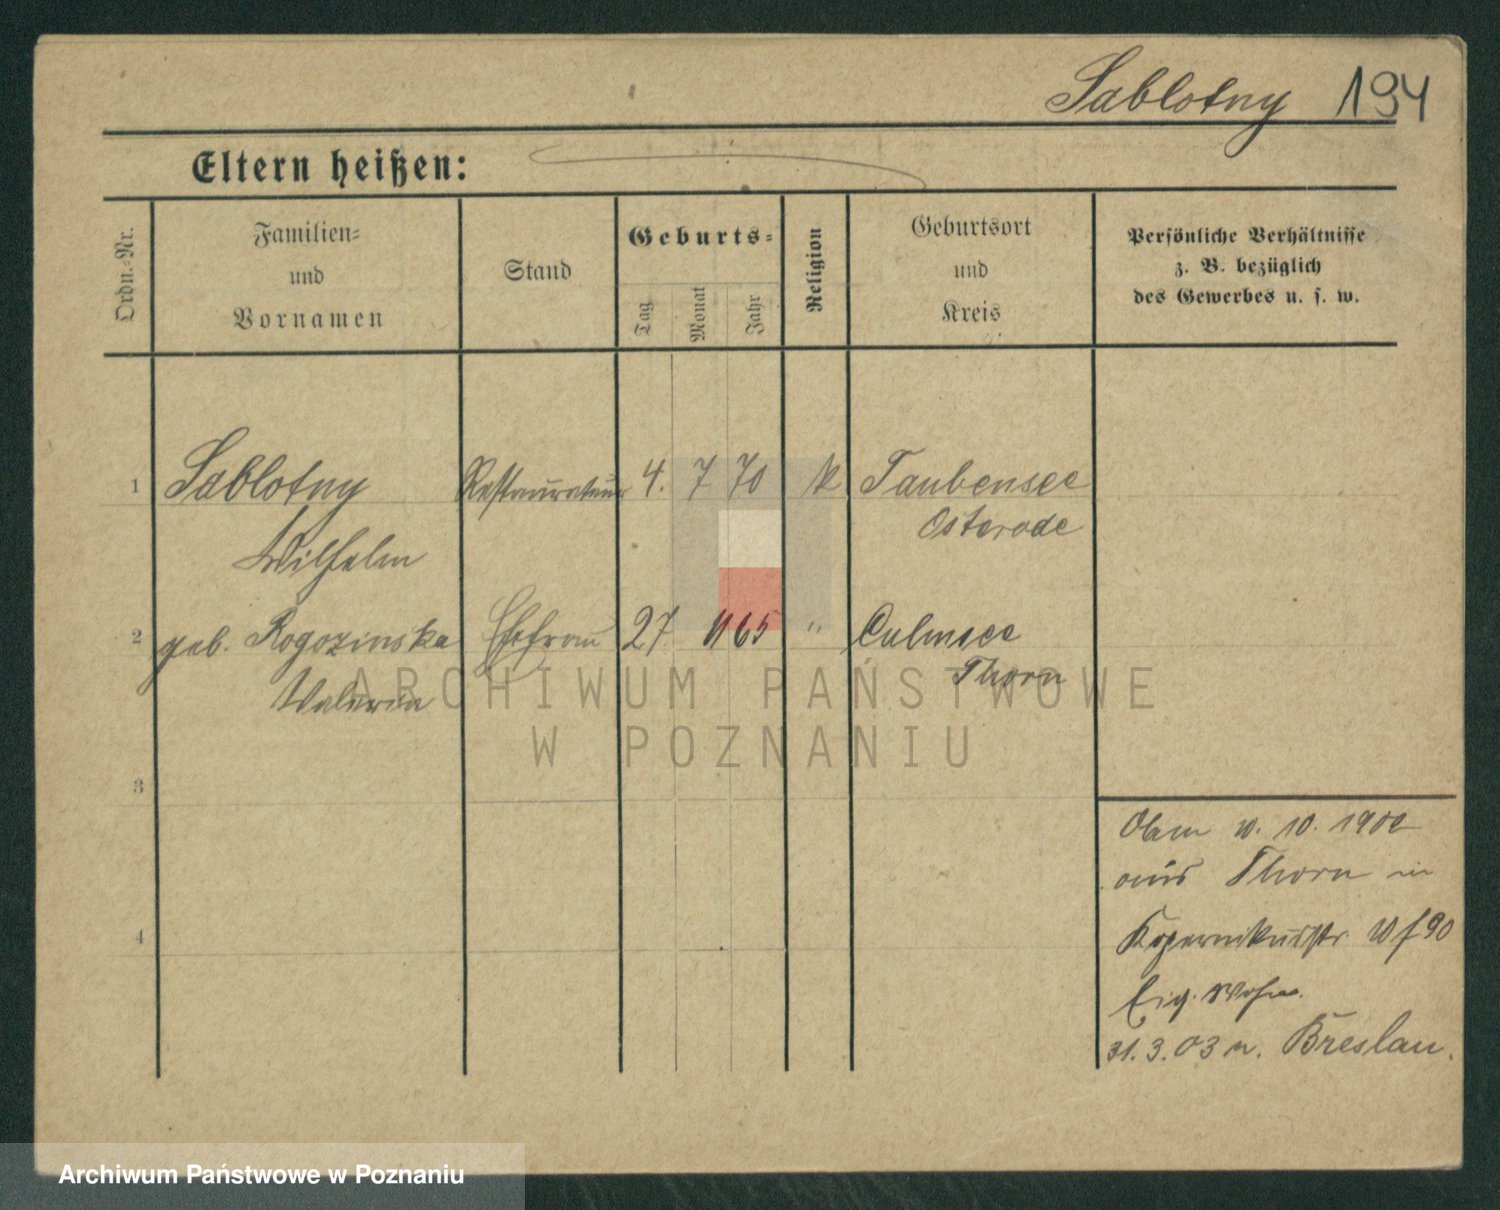 Sablotny 194
Eltern heißen:
Ordn.-Nr.
Familien-
und
Vornamen
Stand
Geburts-
Tag
Monat
Jahr
Religion
Geburtsort
und
Kreis
Persönliche Verhältnisse
z. B. bezüglich
des Gewerbes u. s. w.
1 Sablotny Restaurateur 4. 7 70 k Taubensee
Wilhelm Osterode
2 geb. Rogozinska Ehefrau 27 11 65 " Culmsee
Valeria Thorn
3
4
10. 1902
aus Thorn in
Kopernikusstr.
Eig. Wohn.
31.3.03 n. Breslau.
ARCHIWUM PAŃSTWOWE
W POZNANIU
Archiwum Państwowe w Poznaniu